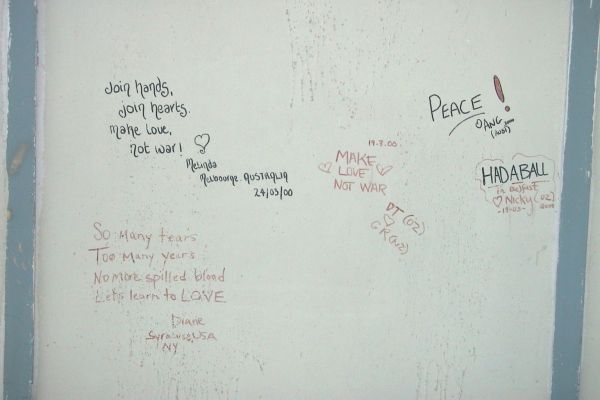 Join hands,
join hearts.
Make love,
not war!
Melinda
Melbourne. AUSTRALIA
24/03/00
So Many tears
Too Many years
No more spilled blood
Let's learn to LOVE
Diane
Syracuse, USA
NY
19.7.00
MAKE
LOVE
NOT WAR
DT (OZ)
GR (NZ)
PEACE!
DANG 2000
HADABALL
in Belfast
Nicky (OZ)
-19-03- 2000